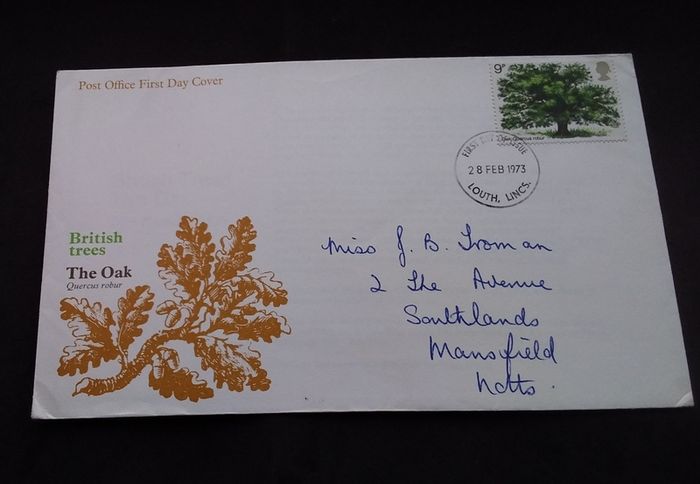 Post Office First Day Cover
9P
Oak Quercus robur
FIRST DAY OF ISSUE
28 FEB 1973
LOUTH, LINCS.
British
trees
The Oak
Quercus robur
Miss J. B. Troman
2 The Avenue
Southlands
Mansfield
Notts.